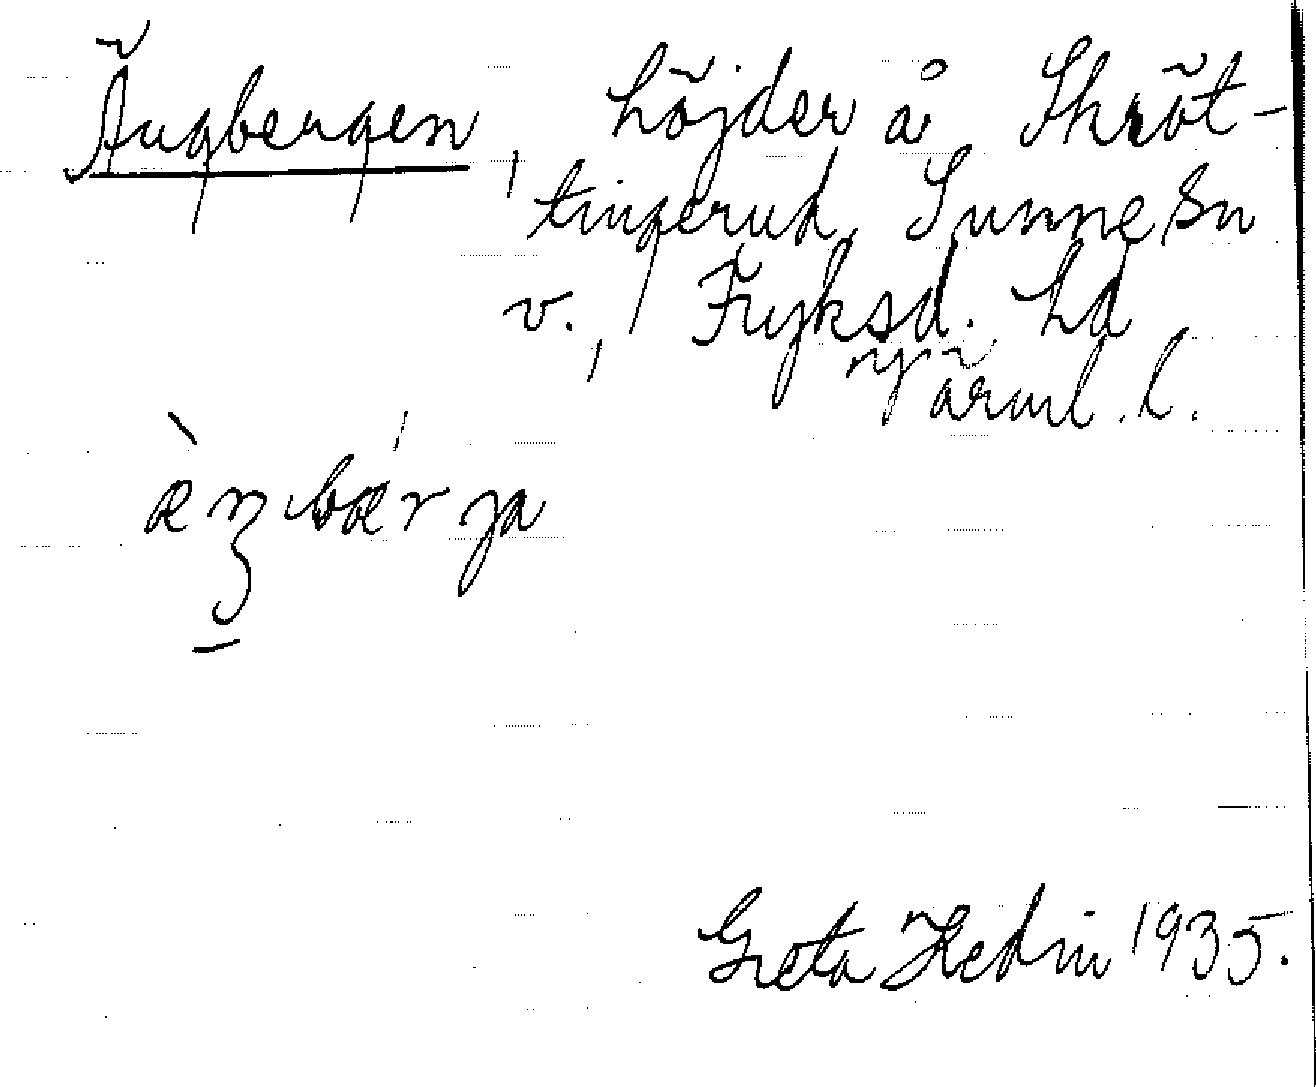 Ängbergen, höjder å Skröt-
tingerud, Sunne sn
v., Fryksd. hd
Värml. l.
Greta Hedin 1935.